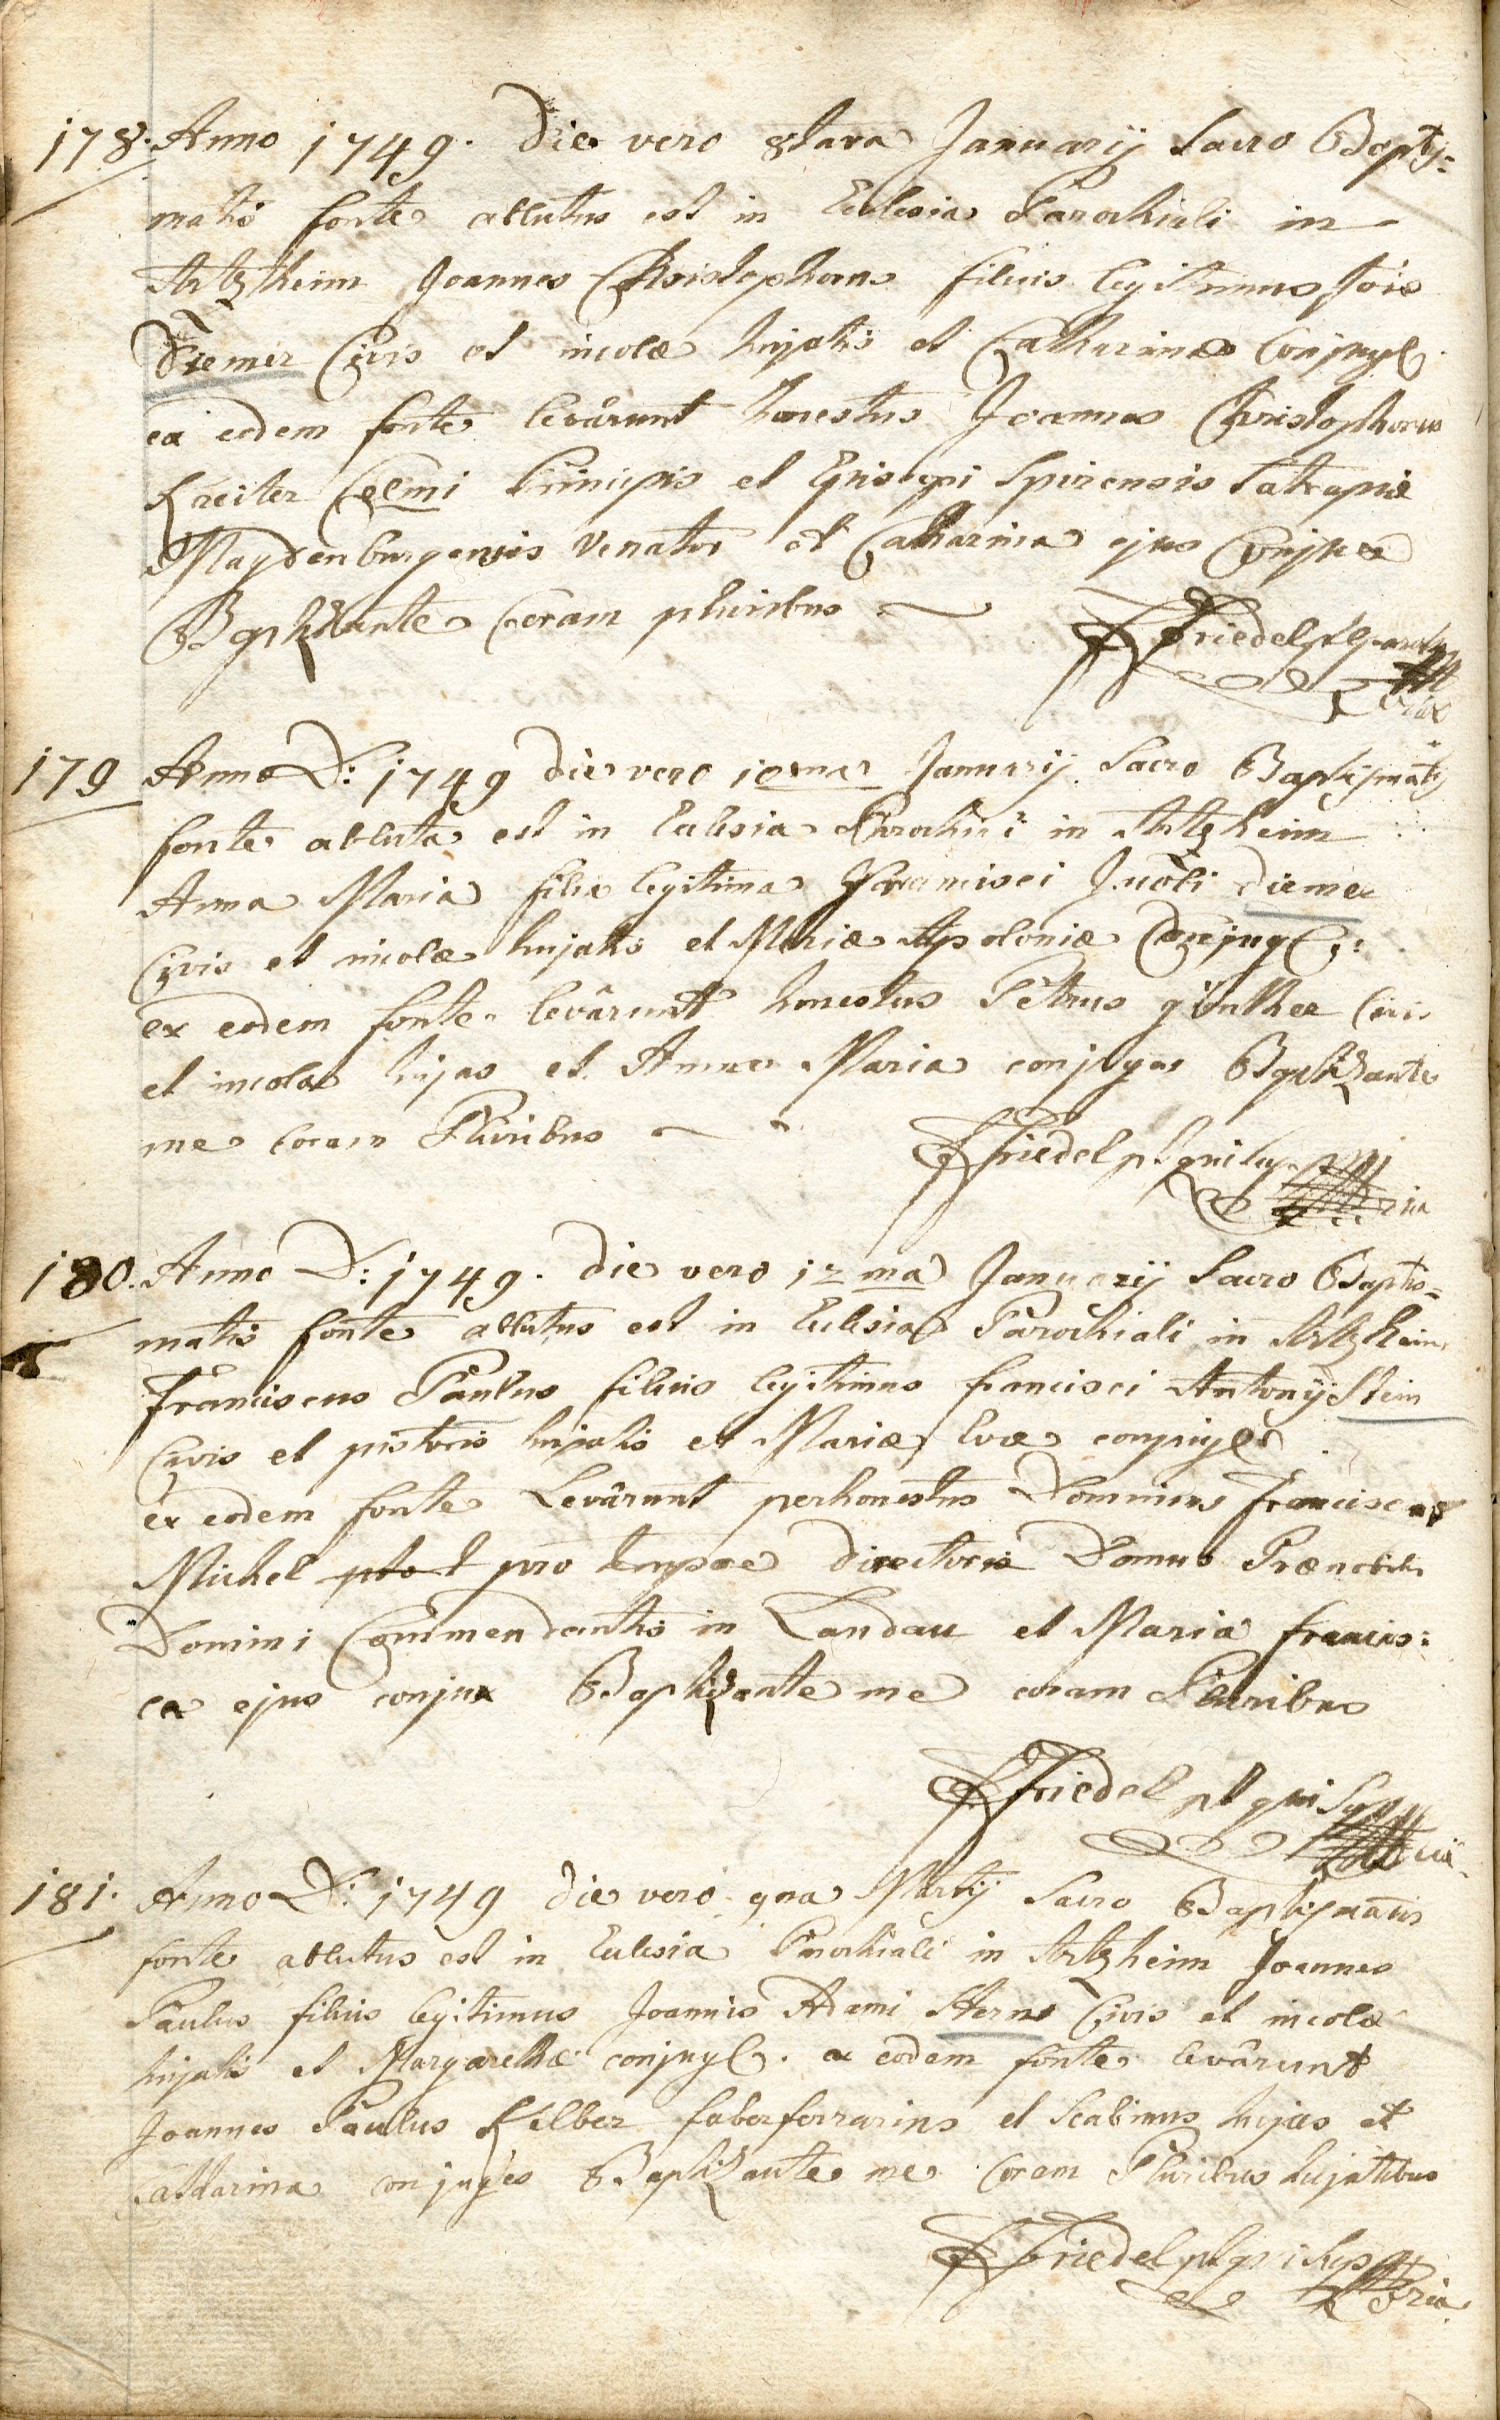 178. Anno 1749. Die vero 8tava Januarij Sacro Baptis=
matis fonte ablutus est in Eclesia Parochiali in
Artzheim Joannes Christophorus filius legitimus Jois
Diemer Civis et incolæ hujatis et Catharinæ Conjug
ex eodem fonte levârunt honestus Joannes Christophorus
Kreiter Celmi Principis et Episcopi Spirensis Satrapiæ
Maydenburgensis Venator et Catharina ejus Conjux
Baptizante Coram pluribus
Friedel
179 Anno D: 1749 die vero 10ma Januarij Sacro Baptismatis
fonte abluta est in Eclesia Parochiali in Artzheim
Anna Maria filia legitima Francisci Jacobi Diemer
Civis et incolæ hujatis et Mariæ Apoloniæ Conjug:
ex eodem fonte levârunt honestus Petrus günther Civis
et incola hujas et Anna Maria conjuges Baptizante
me coram Pluribus
Friedel p.t.
180. Anno D: 1749. Die vero 12ma Januarij Sacro Baptis=
matis fonte ablutus est in Eclesia Parochiali in Artzheim
Franciscus Paulus filius legitimus francisci Antonij Stein
Civis et pistoris hujatis et Mariæ Evæ conjug
ex eodem fonte Levârunt perhonestus Dominus Franciscus
Michel pro tempore directoris Domus Prænobilis
Domini Commendantis in Landau et Maria francis=
ca ejus conjux Baptizante me coram Pluribus
Friedel pt
181. Anno D: 1749 die vero 9na Martij Sacro Baptismatis
fonte ablutus est in Eclesia Parochiali in Artzheim Joannes
Paulus filius legitimus Joannis Adami Herns Civis et incolæ
hujatis et Margarethæ conjug. ex eodem fonte levârunt
Joannes Paulus Kelber faber ferrarius et Scabinus hujas et
Catharina conjuges Baptizante me Coram Pluribus hujatibus
Friedel pt